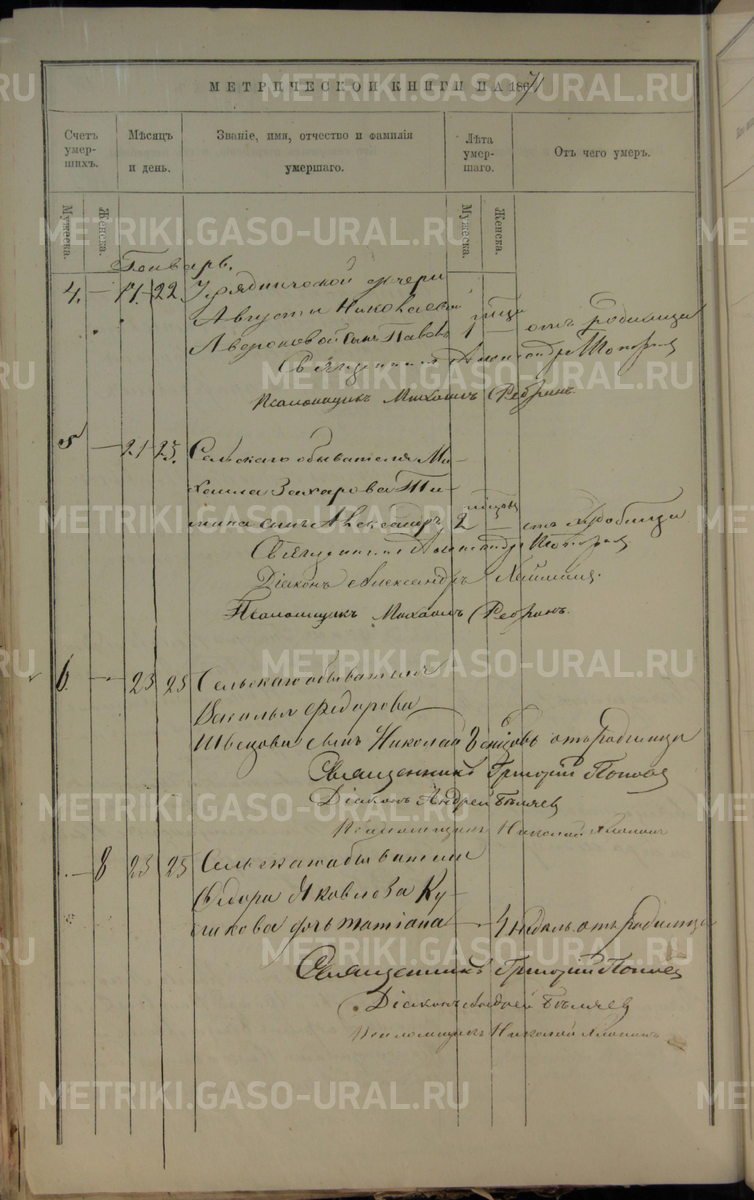 МЕТРИЧЕСКОЙ КНИГИ НА 1871
Счетъ умер- шихъ.
Мужеска. Женска.
Мѣсяцъ и день.
Званіе, имя, отчество и фамилія умершаго.
Лѣта умер- шаго.
Мужеска. Женска.
Отъ чего умеръ.
Генварь.
4. — 17 — 22 Урядничей дочери
Августы Николаевой
сынъ Павелъ 1 отъ родимца
Священникъ Александръ
Псаломщикъ Михаилъ Ребринъ.
5 — 21 — 25. Сельскаго обывателя Ми-
хаила Захарова
сынъ Александръ 2 отъ родимца
Священникъ Александръ
Діаконъ Александръ
Псаломщикъ Михаилъ Ребринъ.
6. — 23 25 Сельскаго обывателя
Василья Федорова
Швецова сынъ Николай отъ родимца
Священникъ Григорій Поповъ
Діаконъ Андрей Бѣляев
Псаломщикъ Николай
— 8 23 25 Сельскаго обывателя
Федора Яковлева Ку-
дочь Татіана — 4 недѣль отъ родимца
Священникъ Григорій Поповъ
Діаконъ Андрей Бѣляев
Псаломщикъ Николай
METRIKI.GASO-URAL.RU